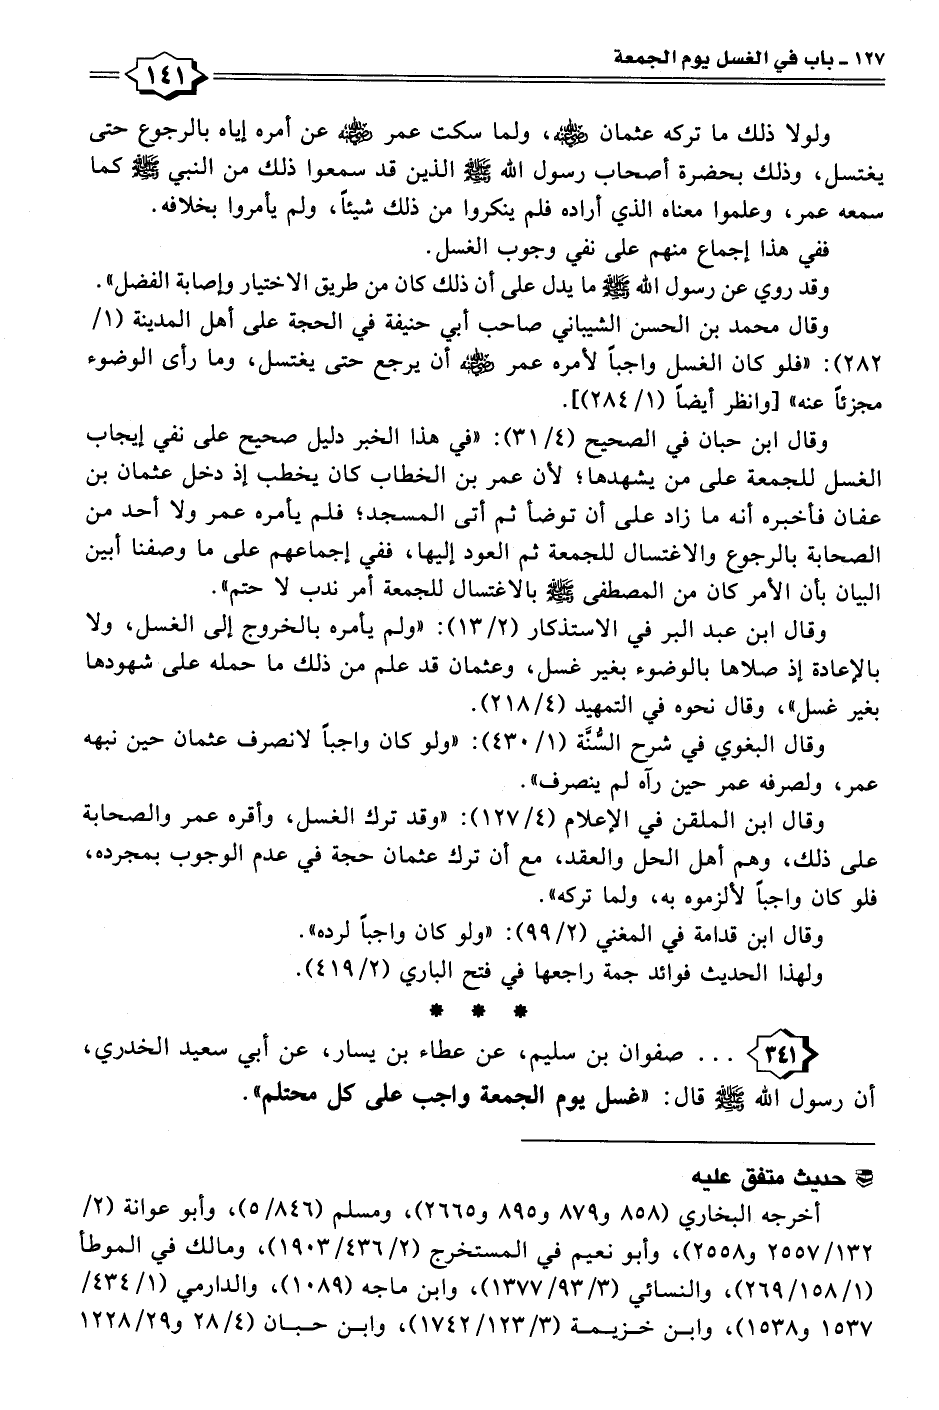 ١٢٧ - باب في الغسل يوم الجمعة
١٤١
ولولا ذلك ما تركه عثمان ﵁، ولما سكت عمر ﵁ عن أمره إياه بالرجوع حتى
يغتسل، وذلك بحضرة أصحاب رسول الله ﷺ الذين قد سمعوا ذلك من النبي ﷺ كما
سمعه عمر، وعلموا معناه الذي أراده فلم ينكروا من ذلك شيئاً، ولم يأمروا بخلافه.
ففي هذا إجماع منهم على نفي وجوب الغسل.
وقد روي عن رسول الله ﷺ ما يدل على أن ذلك كان من طريق الاختيار وإصابة الفضل».
وقال محمد بن الحسن الشيباني صاحب أبي حنيفة في الحجة على أهل المدينة (١/
٢٨٢): «فلو كان الغسل واجباً لأمره عمر ﵁ أن يرجع حتى يغتسل، وما رأى الوضوء
مجزئاً عنه» [وانظر أيضاً (١/٢٨٤)].
وقال ابن حبان في الصحيح (٤/٣١): «في هذا الخبر دليل صحيح على نفي إيجاب
الغسل للجمعة على من يشهدها؛ لأن عمر بن الخطاب كان يخطب إذ دخل عثمان بن
عفان فأخبره أنه ما زاد على أن توضأ ثم أتى المسجد؛ فلم يأمره عمر ولا أحد من
الصحابة بالرجوع والاغتسال للجمعة ثم العود إليها، ففي إجماعهم على ما وصفنا أبين
البيان بأن الأمر كان من المصطفى ﷺ بالاغتسال للجمعة أمر ندب لا حتم».
وقال ابن عبد البر في الاستذكار (٢/١٣): «ولم يأمره بالخروج إلى الغسل، ولا
بالإعادة إذ صلاها بالوضوء بغير غسل، وعثمان قد علم من ذلك ما حمله على شهودها
بغير غسل»، وقال نحوه في التمهيد (٤/٢١٨).
وقال البغوي في شرح السُّنَّة (١/٤٣٠): «ولو كان واجباً لانصرف عثمان حين نبهه
عمر، ولصرفه عمر حين رآه لم ينصرف».
وقال ابن الملقن في الإعلام (٤/١٢٧): «وقد ترك الغسل، وأقره عمر والصحابة
على ذلك، وهم أهل الحل والعقد، مع أن ترك عثمان حجة في عدم الوجوب بمجرده،
فلو كان واجباً لألزموه به، ولما تركه».
وقال ابن قدامة في المغني (٢/٩٩): «ولو كان واجباً لرده».
ولهذا الحديث فوائد جمة راجعها في فتح الباري (٢/٤١٩).
* * *
٣٤١ ... صفوان بن سليم، عن عطاء بن يسار، عن أبي سعيد الخدري،
أن رسول الله ﷺ قال: «غسل يوم الجمعة واجب على كل محتلم».
حديث متفق عليه
أخرجه البخاري (٨٥٨ و٨٧٩ و٨٩٥ و٢٦٦٥)، ومسلم (٥/٨٤٦)، وأبو عوانة (٢/
٢٥٥٧/١٣٢ و٢٥٥٨)، وأبو نعيم في المستخرج (٢/٤٣٦/١٩٠٣)، ومالك في الموطأ
(١/١٥٨/٢٦٩)، والنسائي (٣/٩٣/١٣٧٧)، وابن ماجه (١٠٨٩)، والدارمي (١/٤٣٤/
١٥٣٧ و١٥٣٨)، وابن خزيمة (٣/١٢٣/١٧٤٢)، وابن حبان (٤/٢٨ و١٢٢٨/٢٩